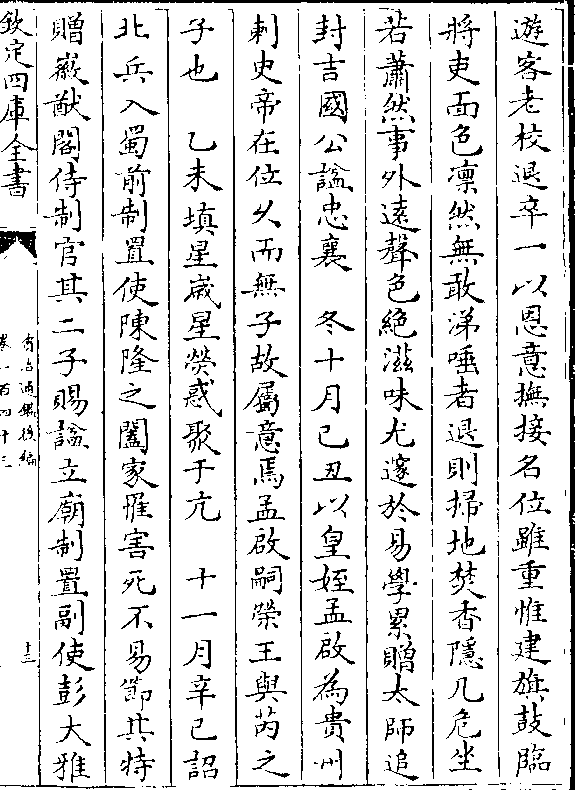 遊客老校退卒一以恩意撫接名位雖重惟建旗鼓臨
將吏面色凛然無敢涕唾者退則掃地焚香隱几危坐
若蕭然事外遠聲色絶滋味尤邃於易學累贈太師追
封吉國公諡忠襄　冬十月己丑以皇姪孟啟為貴州
刺史帝在位乆而無子故屬意焉孟啟嗣榮王與芮之
子也　乙未填星嵗星熒惑聚于亢　十一月辛巳詔
北兵入蜀前制置使陳隆之闔家罹害死不易節其特
贈徽猷閣待制官其二子賜諡立廟制置副使彭大雅
欽定四庫全書
資治通鑑後編
卷一百四十三
十三